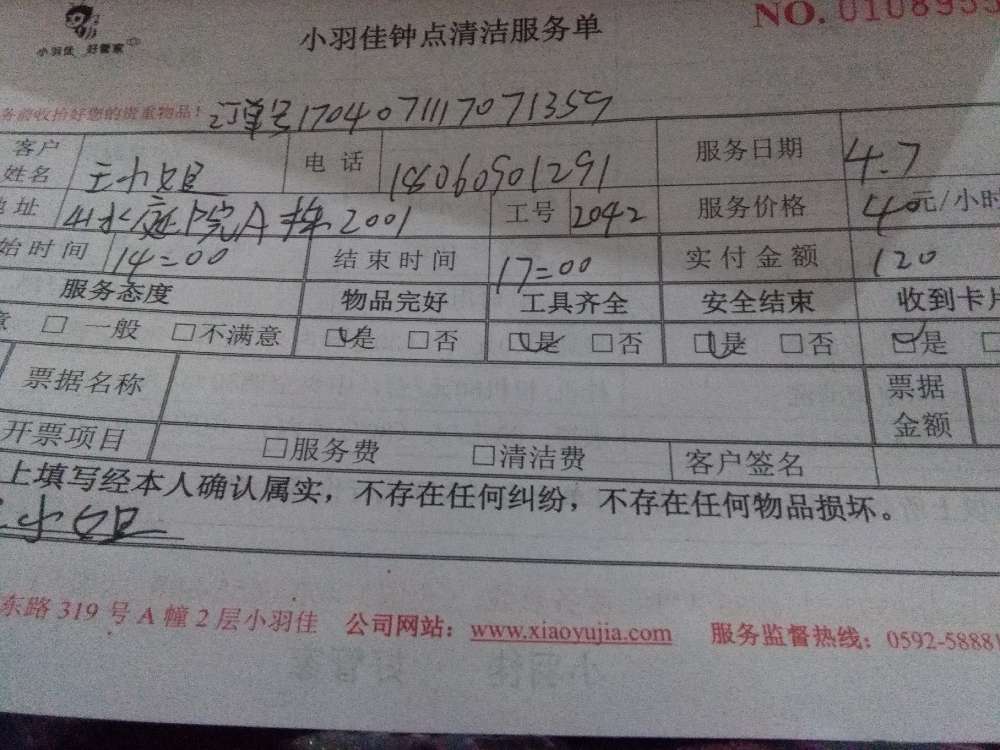 小羽佳 好管家
小羽佳钟点清洁服务单
NO. 0108955
务前收拾好您的贵重物品!
订单号1704071117071359
客户姓名 王小姐 电话 18060501291 服务日期 4.7
地址 山水庭院A栋2001 工号 2042 服务价格 40元/小时
始时间 14=00 结束时间 17=00 实付金额 120
服务态度 物品完好 工具齐全 安全结束 收到卡片
意 □ 一般 □不满意 □是 □否 □是 □否 □是 □否 □是 □
票据名称 票据金额
开票项目 □服务费 □清洁费 客户签名
上填写经本人确认属实，不存在任何纠纷，不存在任何物品损坏。
王小姐
东路319号A幢2层小羽佳 公司网站：www.xiaoyujia.com 服务监督热线：0592-58881